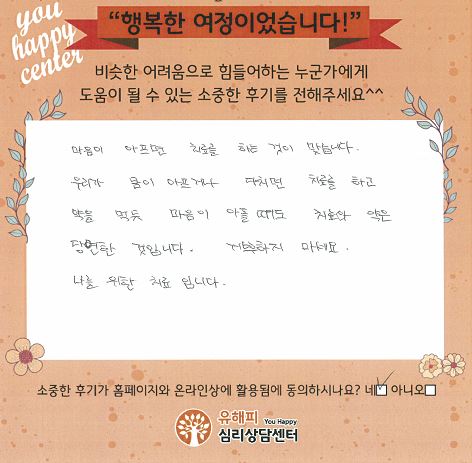 you
happy
center
“행복한 여정이었습니다!”
비슷한 어려움으로 힘들어하는 누군가에게
도움이 될 수 있는 소중한 후기를 전해주세요^^
마음이 아프면 치료를 하는 것이 맞습니다.
우리가 몸이 아프거나 다치면 치료를 하고
약을 먹듯 마음이 아플 때도 치료와 약은
당연한 것입니다. 거부하지 마세요.
나를 위한 치료 입니다.
소중한 후기가 홈페이지와 온라인상에 활용됨에 동의하시나요? 네☑ 아니오☐
유해피 You Happy
심리상담센터